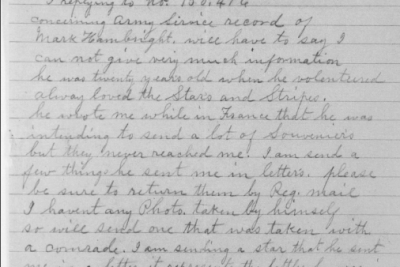 replying to No. 150.476
concerning Army Service record of
Mark Hambright, will have to say I
can not give very much information
he was twenty years old when he volunteered
alway loved the Stars and Stripes.
he wrote me while in France that he was
intending to send a lot of Souveniers
but they never reached me. I am send a
few things he sent me in letters. please
be sure to return them by Reg. mail
I havent any Photo. taken by himself
so will send one that was taken with
a comrade. I am sending a star that he sent
me in a letter it